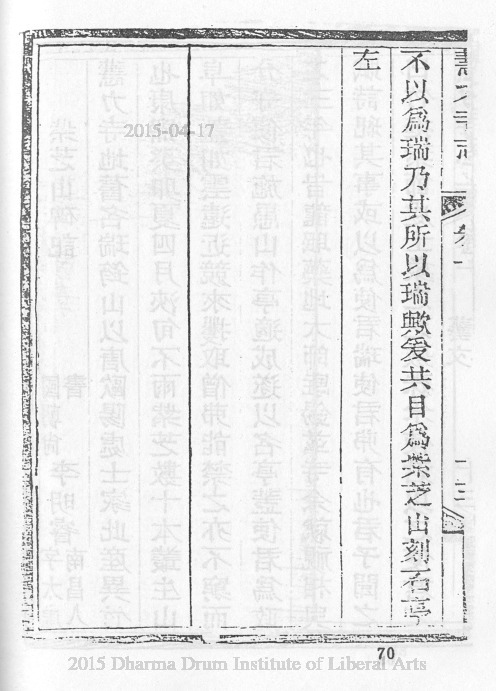 慧力寺志 卷一 十三
不以爲瑞乃其所以瑞歟爰共目爲紫芝山刻石亭
左
2015-04-17
70
2015 Dharma Drum Institute of Liberal Arts